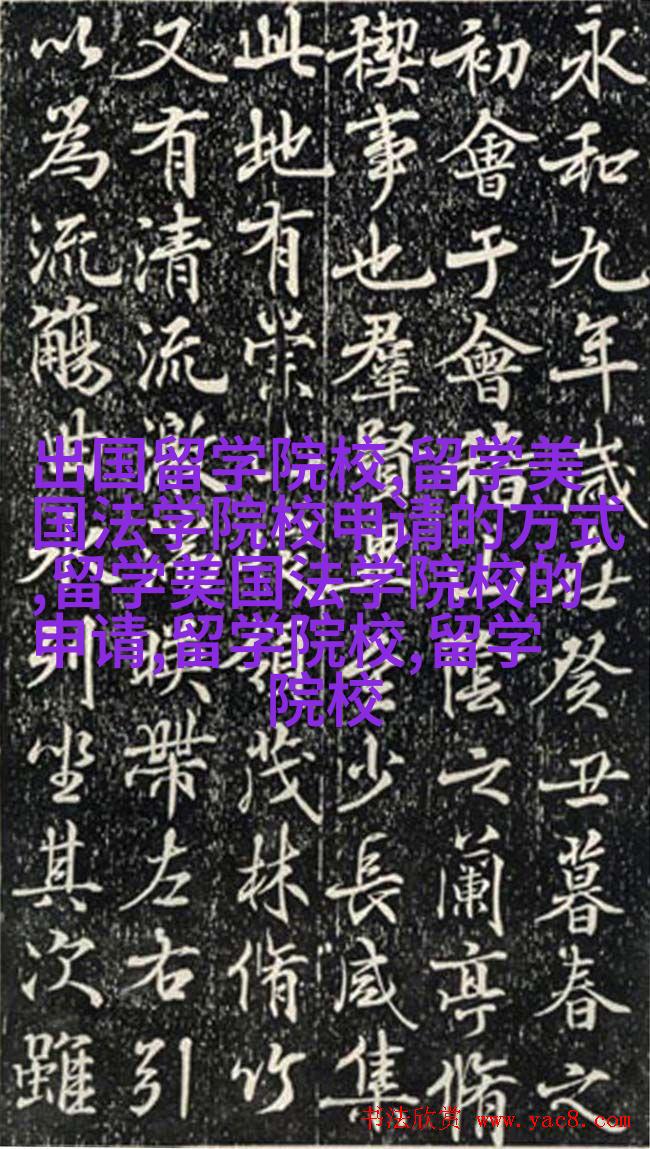 永和九年歲在癸丑暮春之
初會于會稽山陰之蘭亭脩
稧事也羣賢畢至少長咸集
此地有崇茂林脩竹
又有清流激映帶左右引
以為流觴曲水列坐其次雖
出国留学院校,留学美
国法学院校申请的方式
,留学美国法学院校的
申请,留学院校,留学
院校
书法欣赏 www.yac8.com